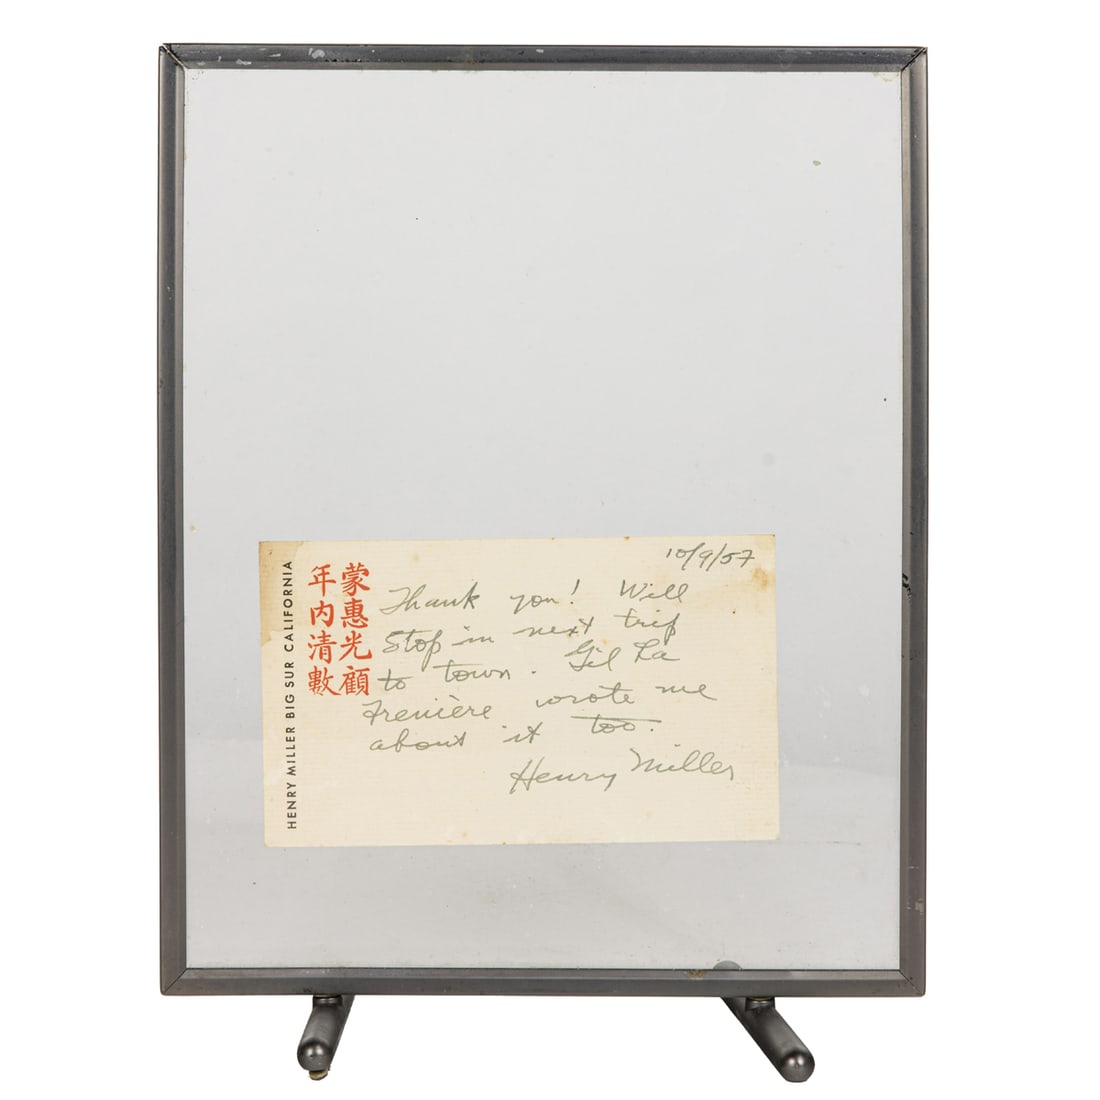 HENRY MILLER BIG SUR CALIFORNIA
蒙惠光顧
年内清數
10/9/57
Thank you! Will
stop in next trip
to town. Gil La
Frenière wrote me
about it too.
Henry Miller